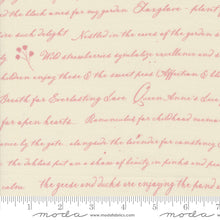 and the black ones for my garden Foxglove - plant
such delight Nestled in the curve of the garden
Wild strawberries symbolize excellence and
children enjoy these & the sweet peas Affection &
Breath for Everlasting Love. Queen Anne's Lace
for open hearts. Remember for childhood
by the gate. alongside the lavender for constancy
the dahlias put on a show of limity in pinks and
calm. the geese and ducks are enjoying the pond
moda
www.modafabrics.com